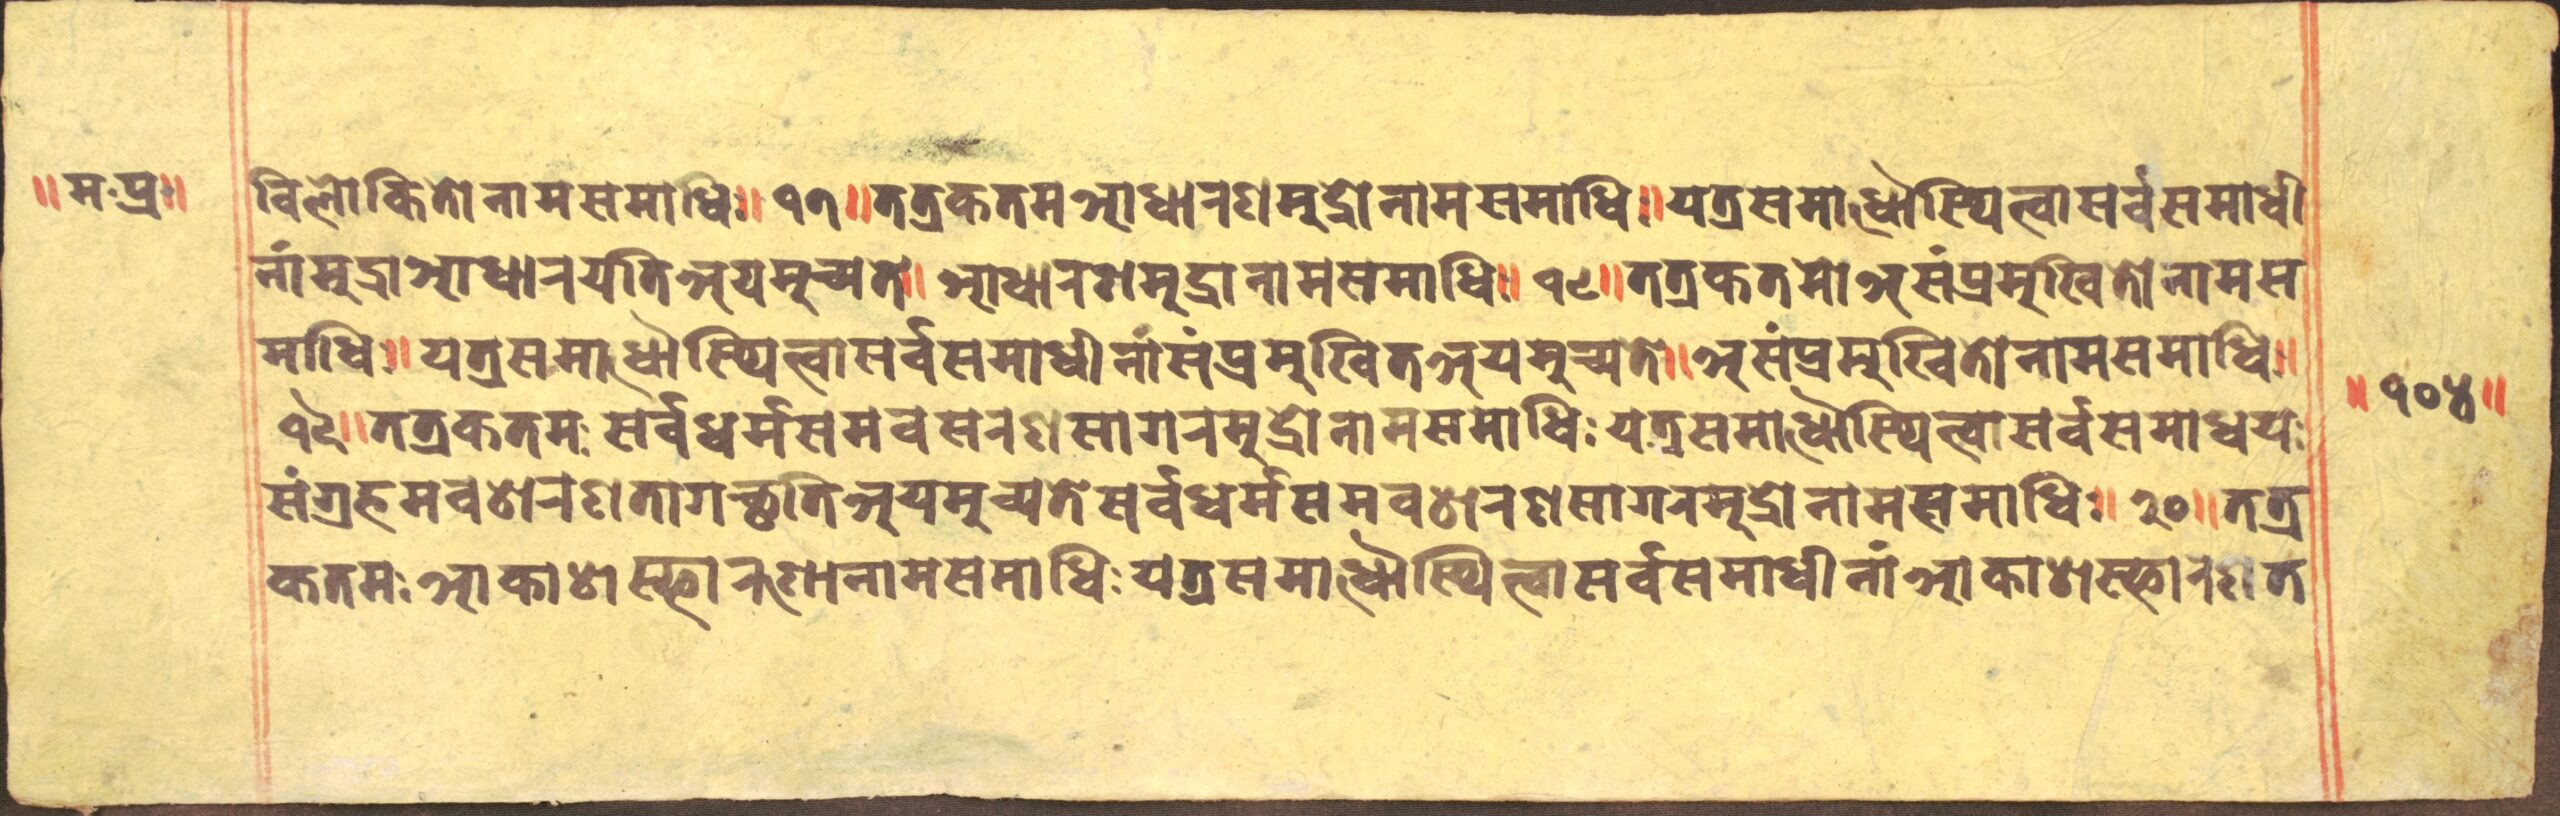 ॥मःप्रः॥
विलोकितोनामसमाधिः॥ १७॥तत्रकतमआधारणमुद्रोनामसमाधिः॥यत्रसमाधौस्थित्वासर्वसमाधी
नांमुद्राआधारयतिअयमुच्यते॥ आधारणमुद्रानामसमाधिः॥ १८॥तत्रकतमोअसंप्रमुखितोनामस
माधिः॥ यत्रसमाधौस्थित्वासर्वसमाधीनांसंप्रमुखितअयमुच्यते॥असंप्रमुखितोनामसमाधिः॥
॥१०४॥
१९॥तत्रकतमः सर्वधर्मसमवसरणसागरमुद्रोनामसमाधिः यत्रसमाधौस्थित्वासर्वसमाधयः
संग्रहमवशरणतागच्छतिअयमुच्यतेसर्वधर्मसमवशरणसागरमुद्रोनामसमाधिः॥ २०॥तत्र
कतमः आकाशस्फारणोनामसमाधिः यत्रसमाधौस्थित्वासर्वसमाधीनांआकाशस्फारणत